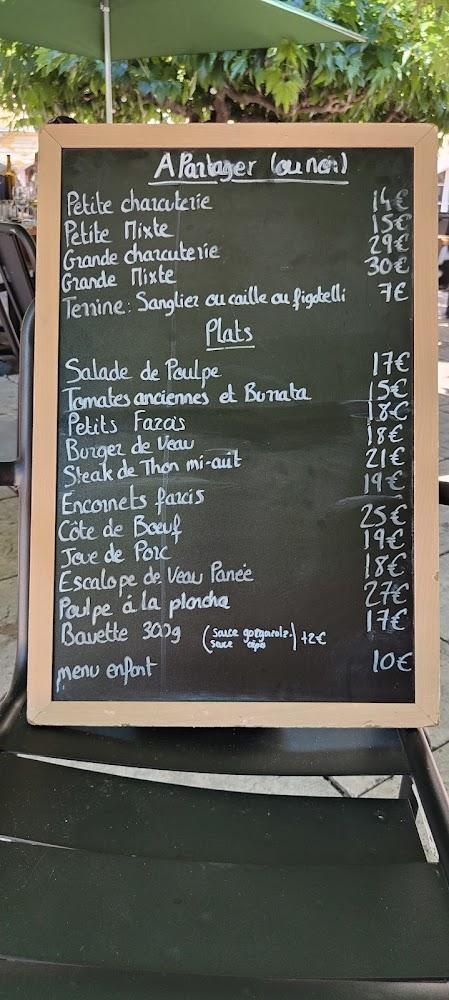 A Partager (ou non)
Petite charcuterie 14€
Petite Mixte 15€
Grande charcuterie 29€
Grande Mixte 30€
Terrine: Sanglier ou caille ou figatelli 7€
Plats
Salade de Poulpe 17€
Tomates anciennes et Burrata 15€
Petits Farcis 18€
Burger de Veau 18€
Steak de Thon mi-cuit 21€
Encornets farcis 19€
Côte de Boeuf 25€
Joue de Porc 19€
Escalope de Veau Panée 18€
Poulpe à la plancha 27€
Bavette 300g (Sauce gorgonzola) +2€ 17€
sauce cèpe
menu enfant 10€